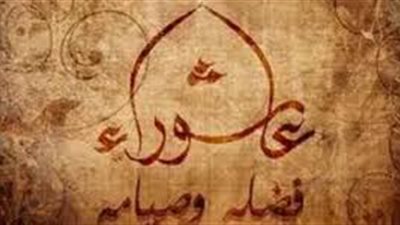 عاشوراء
فضله وصيامه